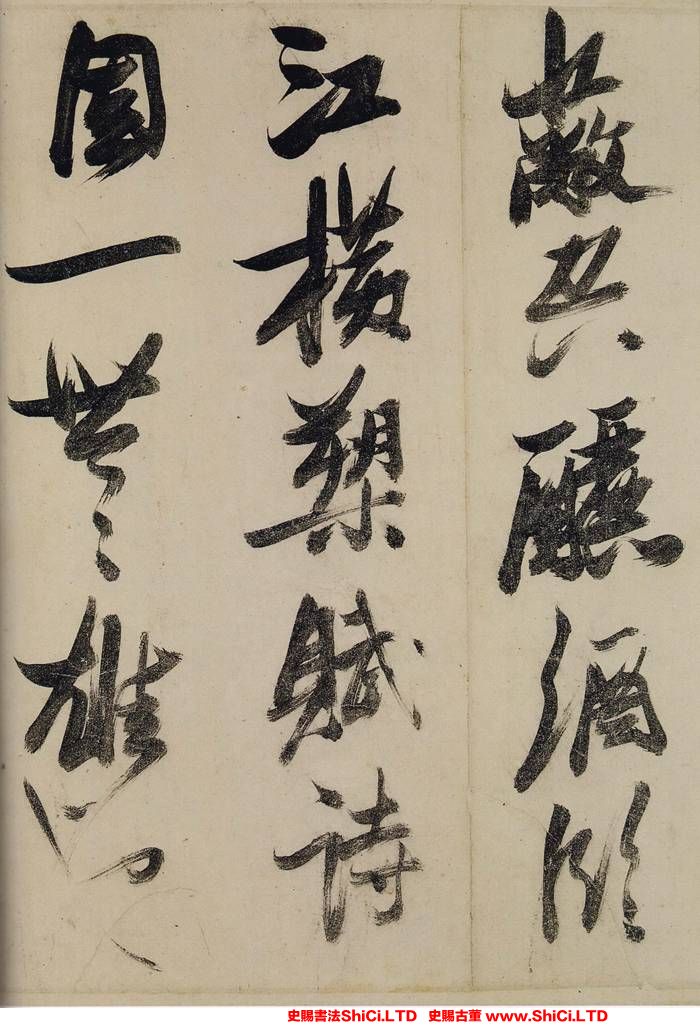 蔽空釃酒臨
江橫槊賦詩
固一世之雄也
史賜書法ShiCi.LTD 史賜古董 www.ShiCi.LTD